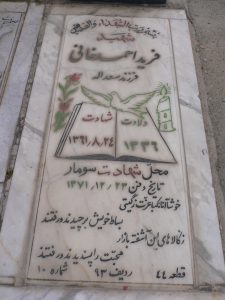 شهید
فرید احمدخانی
فرزند سعداله
ولادت
شهادت
۱۳۳۶
۱۳۶۱،۸،۲۴
محل شهادت سومار
تاریخ دفن ۱۳۷۱،۱۲،۲۳
خوشا آنانکه با عزت ز گیتی
بساط خویش برچیدند و رفتند
ز کالاهای این آشفته بازار
محبت را پسندیدند و رفتند
قطعه ۴۴ ردیف ۹۳ شماره ۱۰